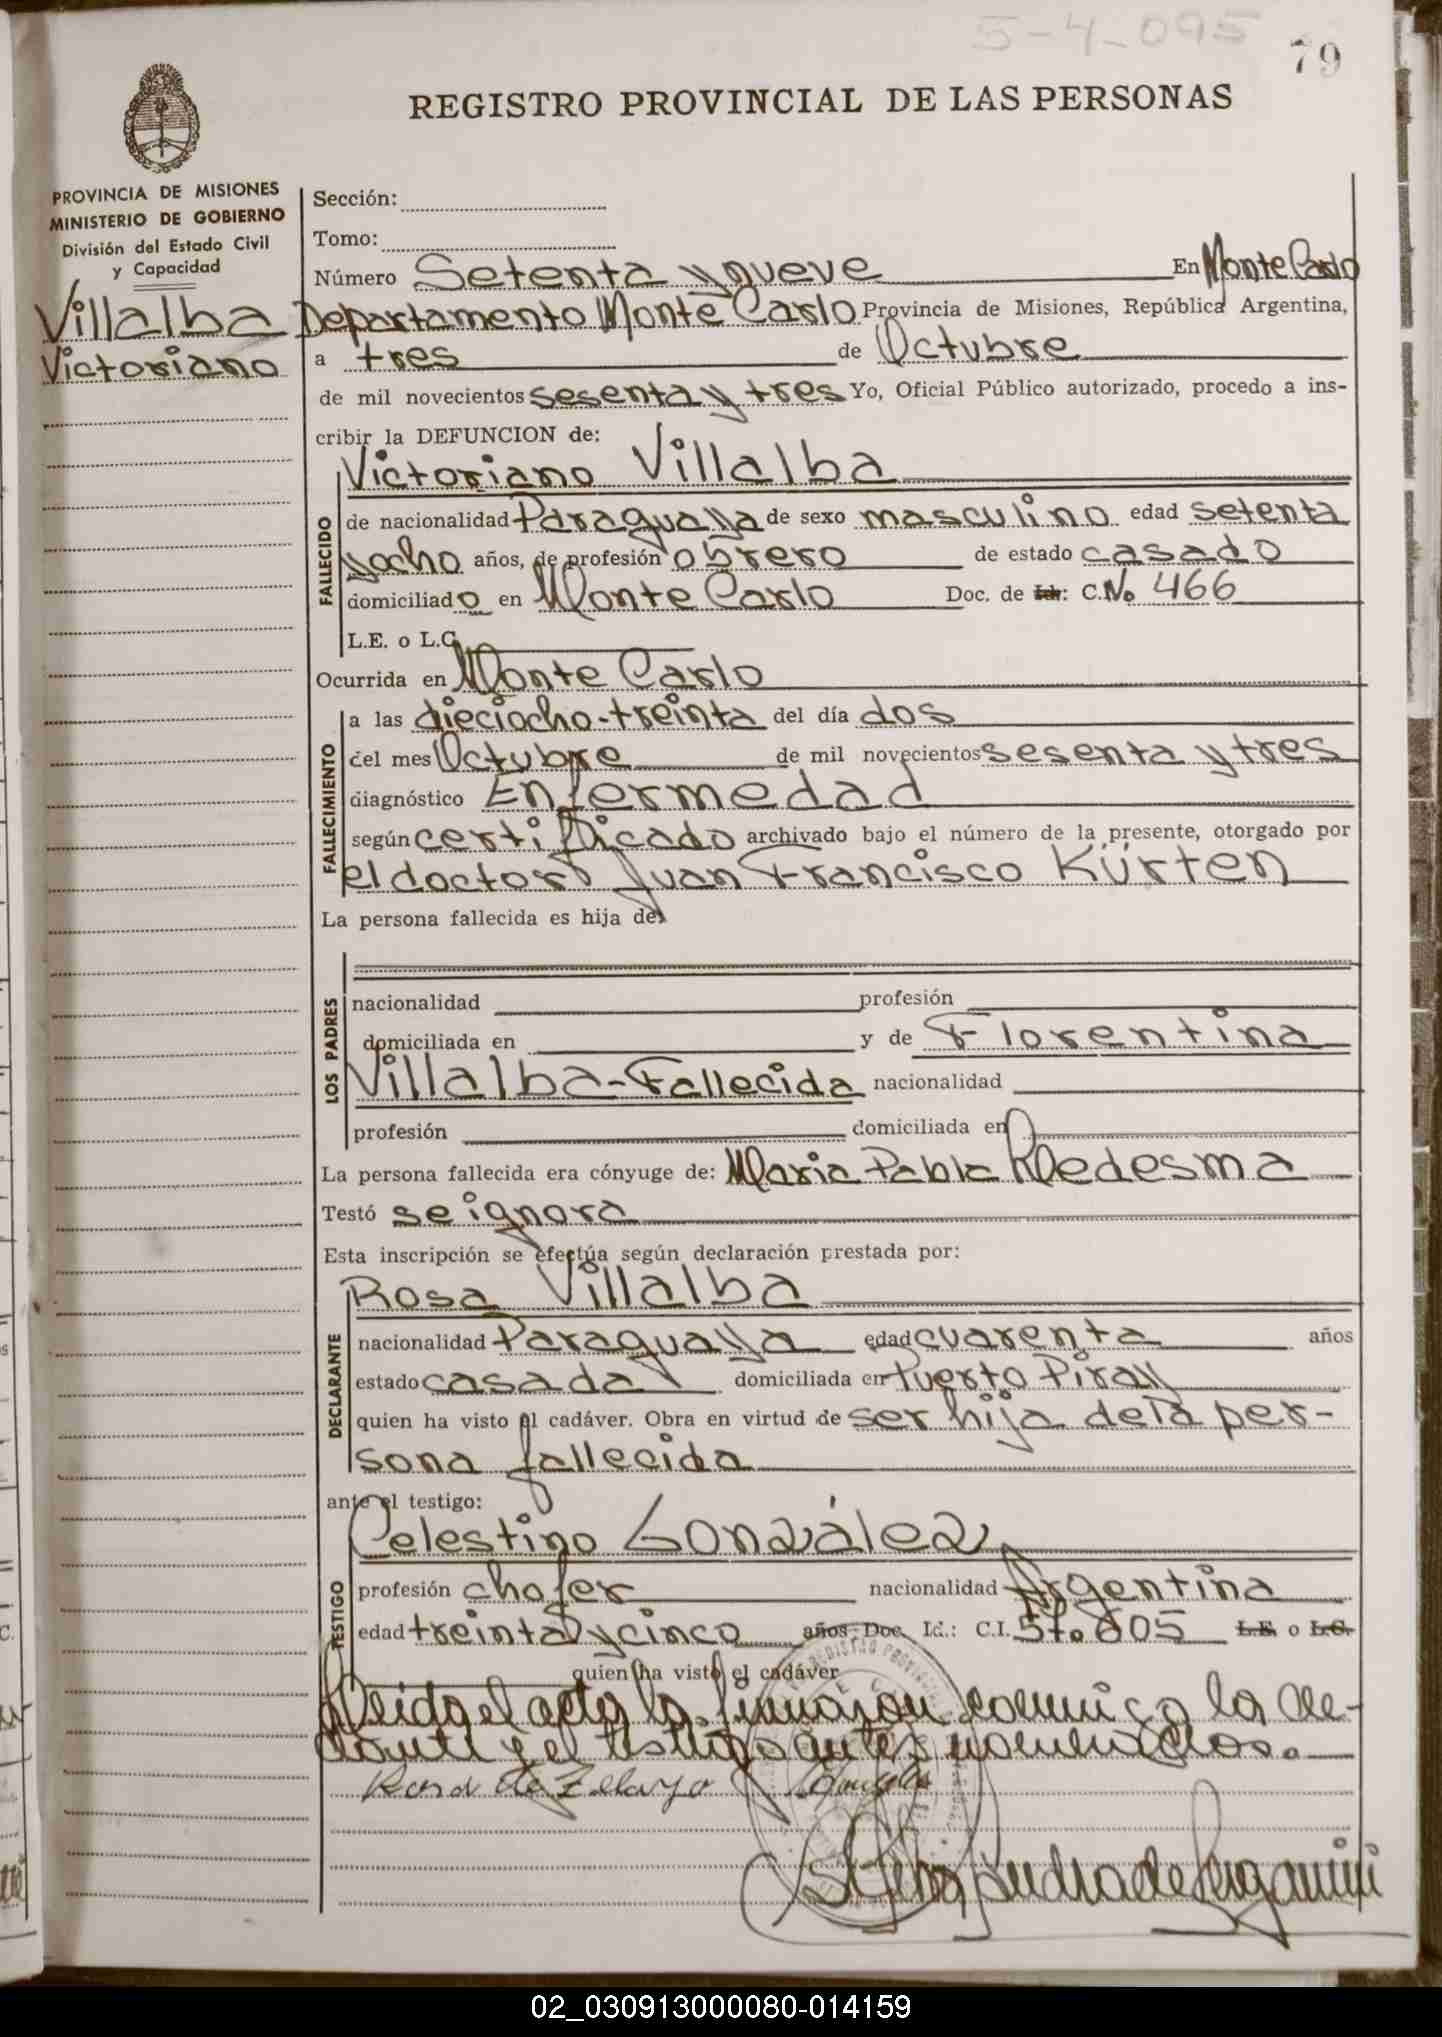 5-4-095
79
REGISTRO PROVINCIAL DE LAS PERSONAS
PROVINCIA DE MISIONES
MINISTERIO DE GOBIERNO
División del Estado Civil
y Capacidad
Villalba
Victoriano
Sección:
Tomo:
Número Setenta y nueve En Monte Carlo
Departamento Monte Carlo Provincia de Misiones, República Argentina,
a tres de Octubre
de mil novecientos sesenta y tres Yo, Oficial Público autorizado, procedo a ins-
cribir la DEFUNCION de:
Victoriano Villalba
FALLECIDO
de nacionalidad Paraguaya de sexo masculino edad setenta
yocho años, de profesión obrero de estado casado
domiciliado en Monte Carlo Doc. de Id.: C.No 466
L.E. o L.C.
Ocurrida en Monte Carlo
FALLECIMIENTO
a las dieciocho-treinta del día dos
del mes Octubre de mil novecientos sesenta y tres
diagnóstico Enfermedad
según certificado archivado bajo el número de la presente, otorgado por
el doctor Juan Francisco Kürten
La persona fallecida es hija de:
LOS PADRES
nacionalidad profesión
domiciliada en y de Florentina
Villalba-Fallecida nacionalidad
profesión domiciliada en
La persona fallecida era cónyuge de: Maria Pabla Ledesma
Testó se ignora
Esta inscripción se efectúa según declaración prestada por:
Rosa Villalba
DECLARANTE
nacionalidad Paraguaya edad cuarenta años
estado casada domiciliada en Puerto Piray
quien ha visto el cadáver. Obra en virtud de ser hija de la per-
sona fallecida
ante el testigo:
Celestino González
TESTIGO
profesión chofer nacionalidad Argentina
edad treinta y cinco años Doc. Id.: C.I. 57.605 L.E. o L.C.
quien ha visto el cadáver
Leida el acta la firmaron conmigo la de-
clarante y el testigo antes nombrados.
Rosa de Zelaya
02_030913000080-014159